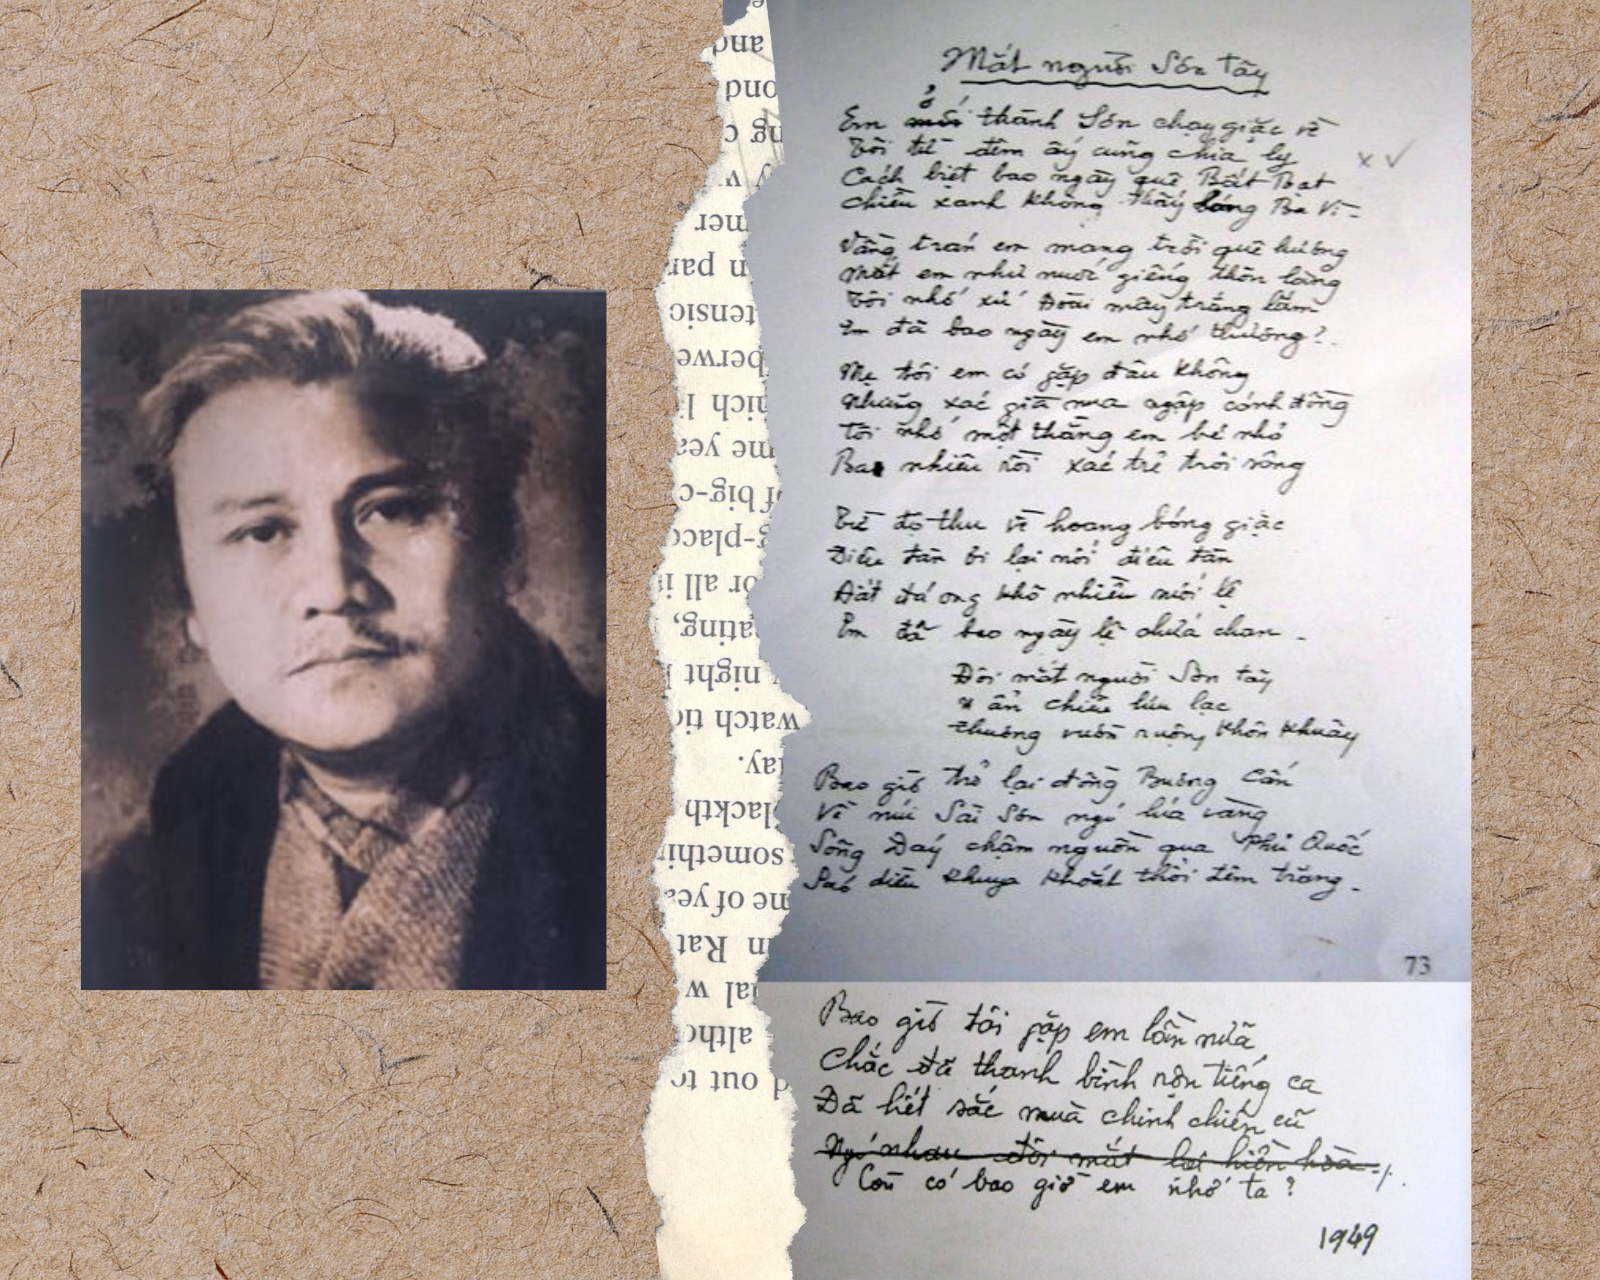 and
ond
ng c
y w
mer
n par
tensio
berwe
hich li
me yea
f big-c
g-place
or all i
ating,
night
watch tic
ay.
lackth
somethin
me of yea
n Rat
ial w
altho
d out to
Mắt người Sơn Tây
Em ở thành Sơn chạy giặc về
Tôi từ đêm ấy cũng chia ly
Cách biệt bao ngày quê Bất Bạt
Chiều xanh không thấy bóng Ba Vì
Vầng trán em mang trời quê hương
Mắt em như nước giếng thôn làng
Tôi nhớ xứ Đoài mây trắng lắm
Em đã bao ngày em nhớ thương?.
Mẹ tôi em có gặp đâu không
Những xác già nua ngập cánh đồng
Tôi nhớ một thằng em bé nhỏ
Bao nhiêu rồi xác trẻ trôi sông
Từ độ thu về hoang bóng giặc
Điêu tàn ôi lại nối điêu tàn
Đất đá ong khô nhiều suối lệ
Em đã bao ngày lệ chứa chan.
Đôi mắt người Sơn Tây
U ẩn chiều lưu lạc
Thương vườn ruộng khôn khuây
Bao giờ trở lại đồng Bương Cấn
Về núi Sài Sơn ngó lúa vàng
Sông Đáy chậm nguồn qua Phủ Quốc
Sáo diều khuya khoắt thổi đêm trăng.
73
Bao giờ tôi gặp em lần nữa
Chắc đã thanh bình rộn tiếng ca
Đã hết sắc mùa chinh chiến cũ
Ngó nhau đôi mắt lại hiền hòa
Còn có bao giờ em nhớ ta?
1949